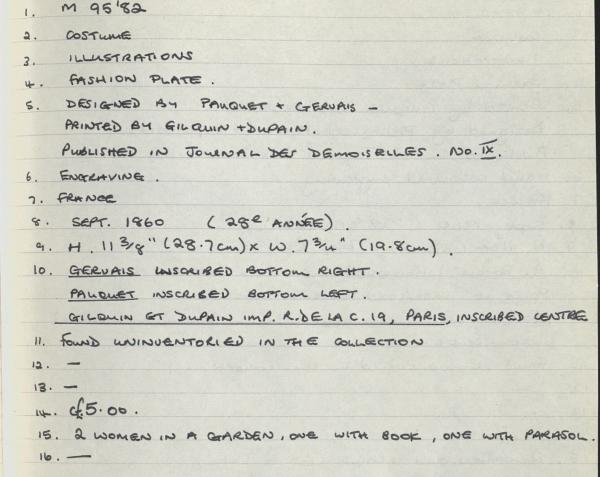 1. M 95'82
2. COSTUME
3. ILLUSTRATIONS
4. FASHION PLATE.
5. DESIGNED BY PAUQUET + GERVAIS -
PRINTED BY GILQUIN + DUPAIN.
PUBLISHED IN JOURNAL DES DEMOISELLES. NO. IX.
6. ENGRAVING.
7. FRANCE
8. SEPT. 1860 (28e ANNÉE).
9. H. 11 3/8" (28.7cm) x W. 7 3/4" (19.8cm).
10. GERVAIS INSCRIBED BOTTOM RIGHT.
PAUQUET INSCRIBED BOTTOM LEFT.
GILQUIN ET DUPAIN IMP. R. DE LA C. 19, PARIS, INSCRIBED CENTRE
11. FOUND UNINVENTORIED IN THE COLLECTION
12. —
13. —
14. £5.00.
15. 2 WOMEN IN A GARDEN, ONE WITH BOOK, ONE WITH PARASOL.
16. —